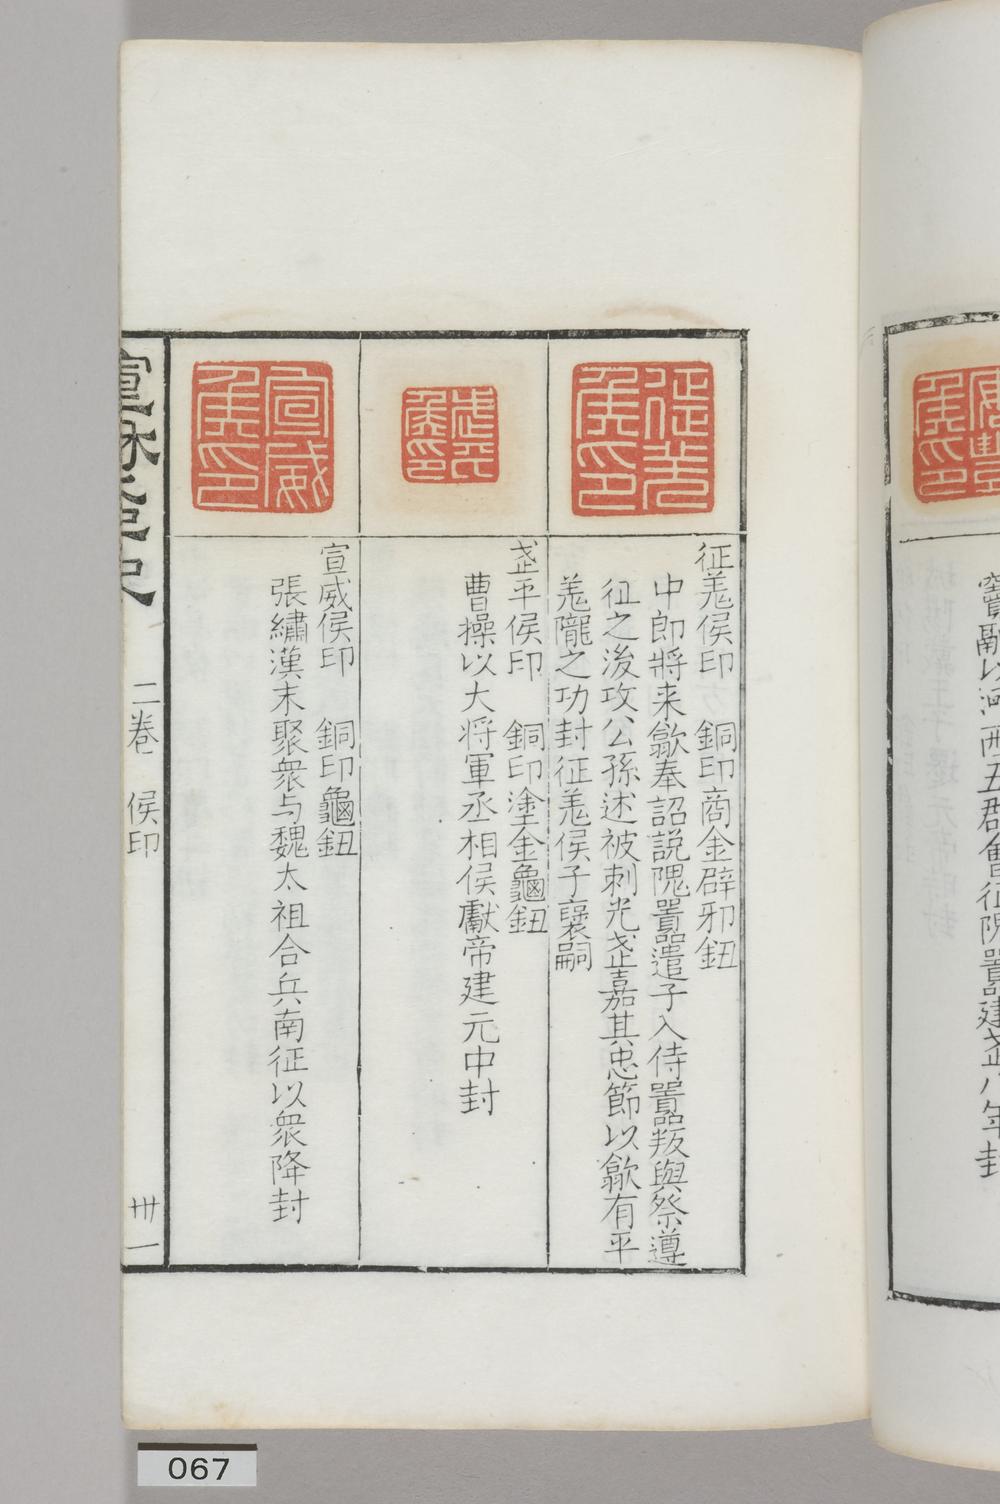 竇融以河西五群會征隗囂建武八年封
征羌侯印
征羌侯印　銅印商金辟邪鈕
中郎將来歙奉詔説隗囂遣子入侍囂叛與祭遵
征之後攻公孫述被刺光武嘉其忠節以歙有平
羌隴之功封征羌侯子襃嗣
武平侯印
武平侯印　銅印塗金龜鈕
曹操以大将軍丞相侯獻帝建元中封
宣威侯印
宣威侯印　銅印龜鈕
張繡漢末聚衆与魏太祖合兵南征以衆降封
宣和集古印史　二卷　侯印　卅一
067